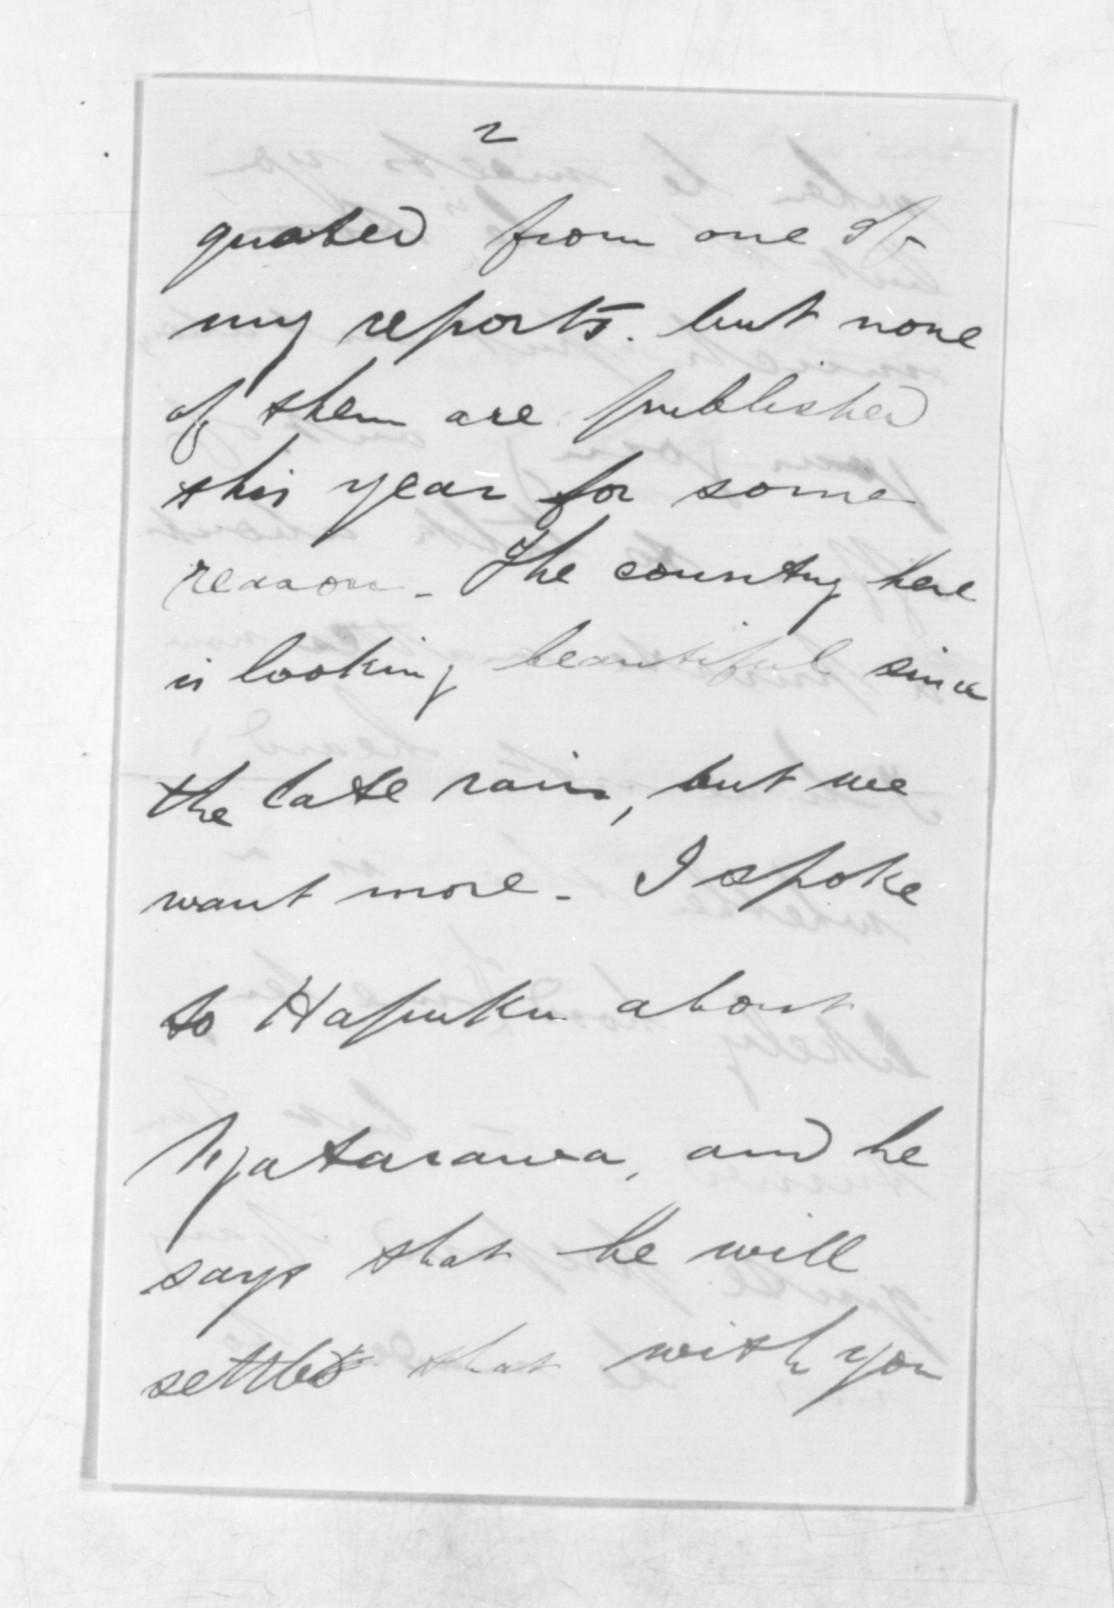 2
quoted from one of
my reports. but none
of them are published
this year for some
reason - The country here
is looking beautiful since
the late rain, but we
want more - I spoke
to Hapuku about
Ngatarawa, and he
says that he will
settle that with you